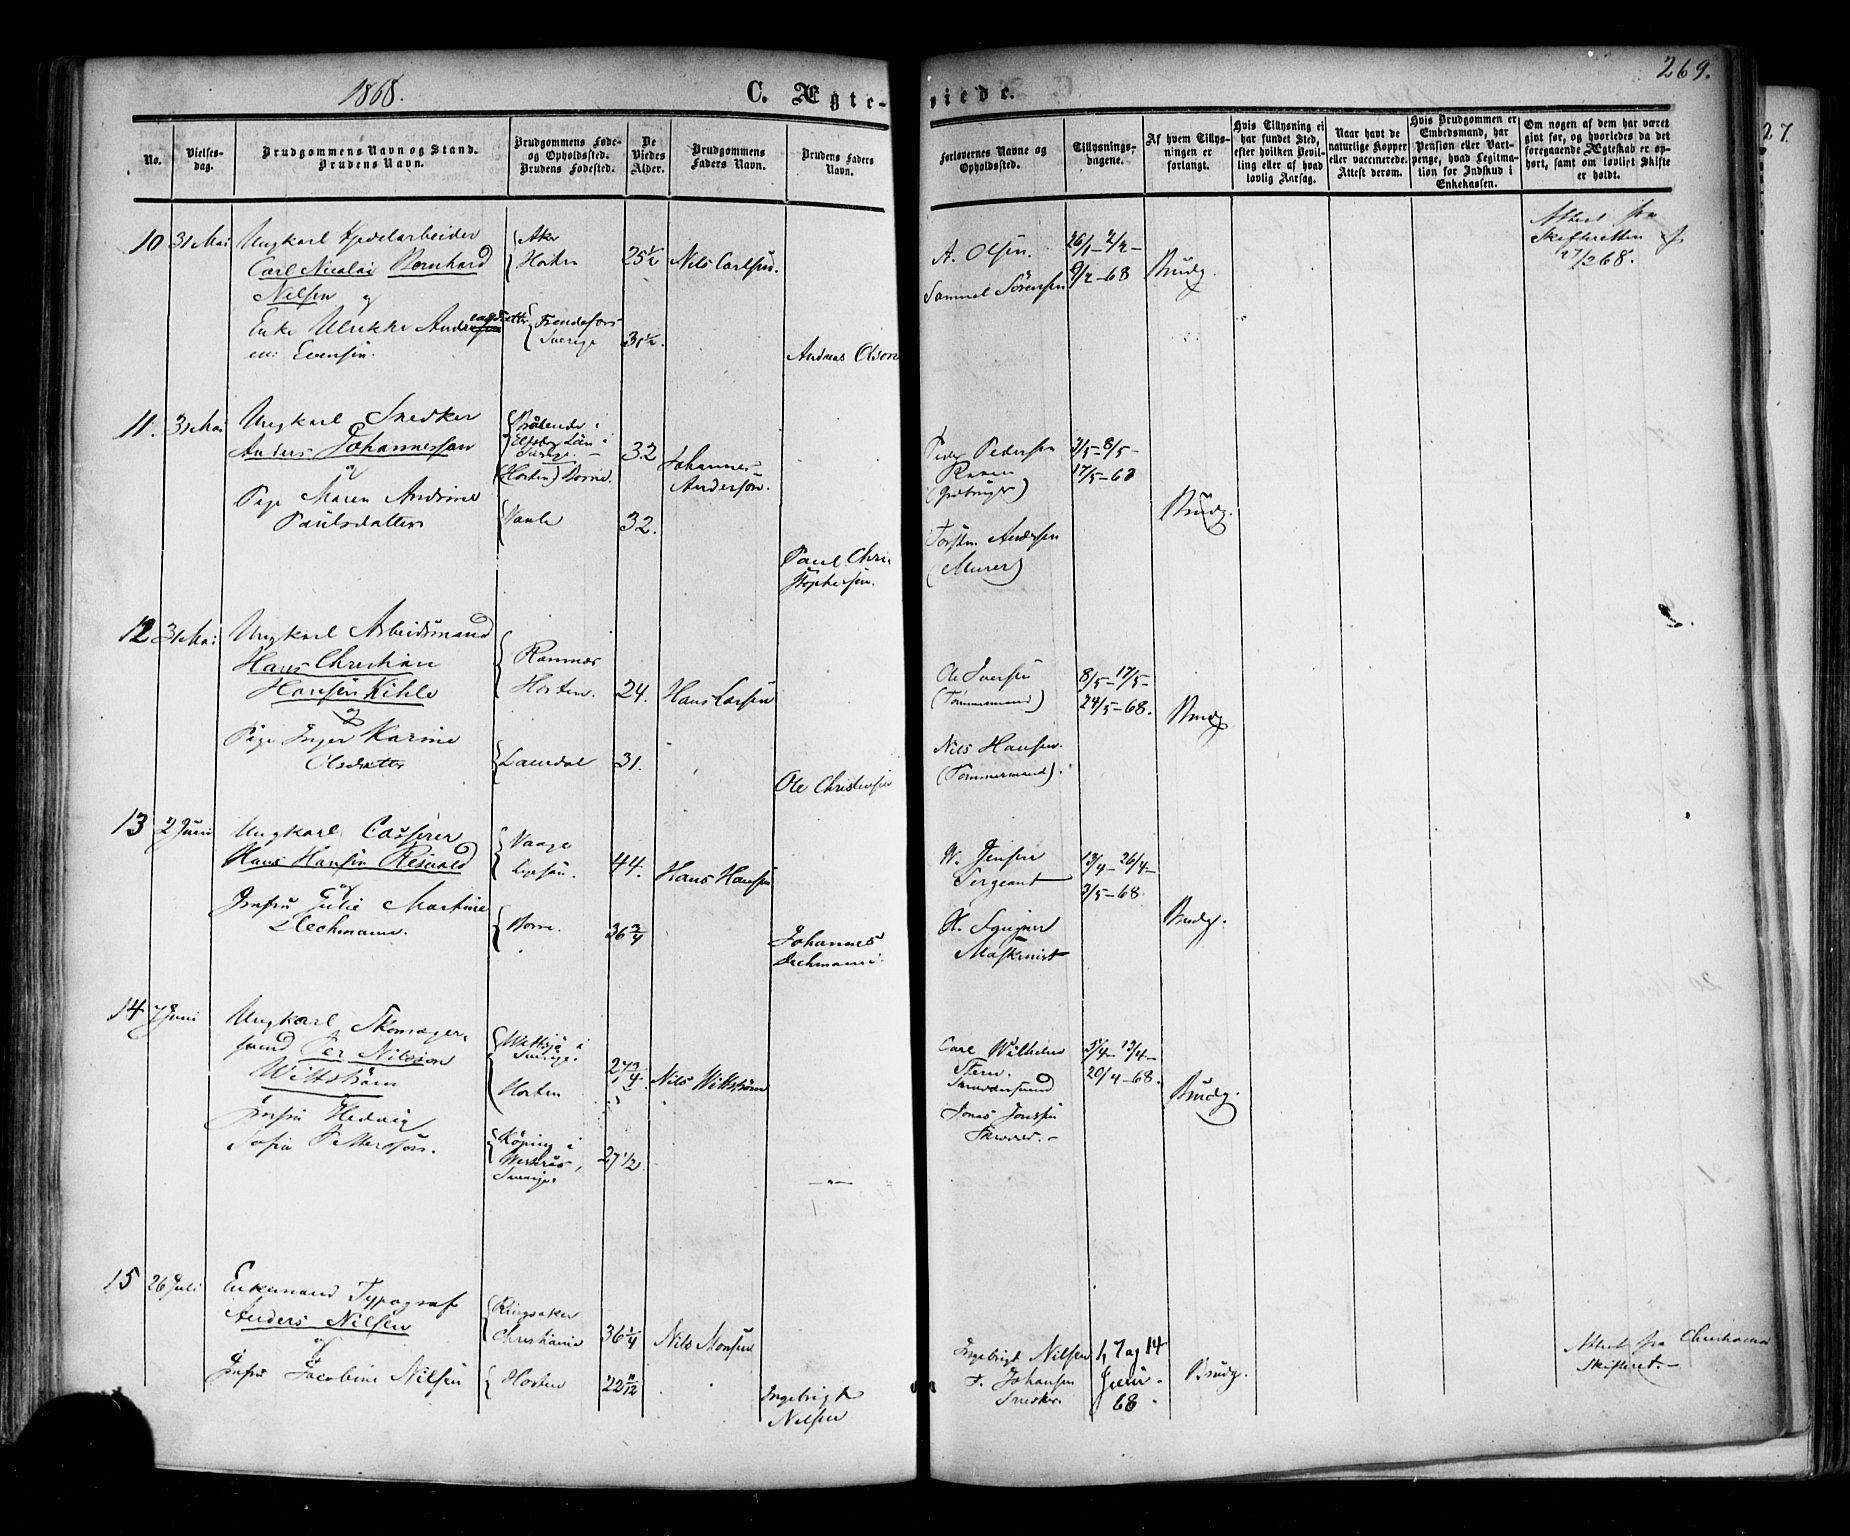 1868.
C. Ægte-
viede.
269.
27.
No.
Vielses-
dag.
Brudgommens Navn og Stand.
Brudens Navn.
Brudgommens Føde-
og Opholdssted.
Brudens Fødested.
De
Viedes
Alder.
Brudgommens
Faders Navn.
Brudens Faders
Navn.
Forlovernes Navne og
Opholdssted.
Tillysnings-
dagene.
Af hvem Tillys-
ningen er
forlangt.
Hvis Tillysning ei
har fundet Sted,
efter hvilken Bevil-
ling eller af hvad
lovlig Aarsag.
Naar havt de
naturlige Kopper
eller vaccinerede.
Attest derom.
Hvis Brudgommen er
Embedsmand, har
Pension eller Vart-
penge, hvad Legitima-
tion for Indskud i
Enkekassen.
Om nogen af dem har været
gift før, og hvorledes da det
foregaaende Ægteskab er op-
hørt, samt om lovligt Skifte
er holdt.
10 31 Mai
Ungkarl Kjedelarbeider
Carl Nicolai Bernhard
Nilsen og
Enke Ulrikke Andreasdatter
Evensen.
Aker
Horten
Sverige
25 1/2
31 1/2.
Nils Carlsen.
Andreas Olsen
A. Olsen.
Samuel Sörensen
26/1 - 2/2 -
9/2 - 68
Brudg.
Attest fra
Skifteretten af
/2 68.
11. 31 Mai
Ungkarl Snedker
Anders Johannesson
og
Pige Maren Andrine
Paulsdatter
Elfsborg Län i
Sverige. -
(Horten) Borre.
Vaale
32
32.
Johannes
Anderson.
Paul Chri-
stophersen.
Peder Pedersen
Raven
(Gårdbruger)
Torsten Andersen
(Murer)
3/5 - 8/5 -
17/5 - 68
Brudg.
12 31 Mai
Ungkarl Arbeidsmand
Hans Christian
Hansen Kihle
og
Pige Inger Karine
Olsdatter
Ramnæs
Horten.
Laurdal
24.
31.
Hans Larsen
Ole Christensen
Ole Iversen
(Tømmermand)
Nils Hansen.
(Tømmermand).
8/5 - 17/5 -
24/5 - 68.
Brudg
13 2 Juni
Ungkarl Casserer
Hans Hansen Resvold
og
Jomfru Julie Martine
Dechmann.
Vaage
Borre.
44.
36 3/4
Hans Hansen
Johannes
Dechmann.
W. Jensen
Sergeant
Maskinist
13/4 - 26/4 -
3/5 - 68.
Brudg.
14 7 Juni
Ungkarl Skomager-
svend Per Nilsson
Wittström
Jomfru Hedvig
Sofia Pettersson.
Sverige.
Horten
Köping i
Westerås,
Sverige.
27 3/4
27 1/2
Nils Wittström
-"-
Carl Wilhelm
Stern
Skræddersvend
Jonas Jonsson
Skræder. -
5/4 - 13/4 -
20/4 - 68.
Brudg.
15 26 Juli
Enkemand Typograf
Anders Nilsen
og
Jomfru Jacobine Nilsen
Ringsaker
Christiania
Horten
36 1/4
22 11/12
Nils Monsen
Ingebrigt
Nilsen
Ingebrigt Nilsen
F. Johansen
Snedker.
1, 7 og 14
Juni -
68 -
Brudg.
Attest fra Christiania
Skifteret. -